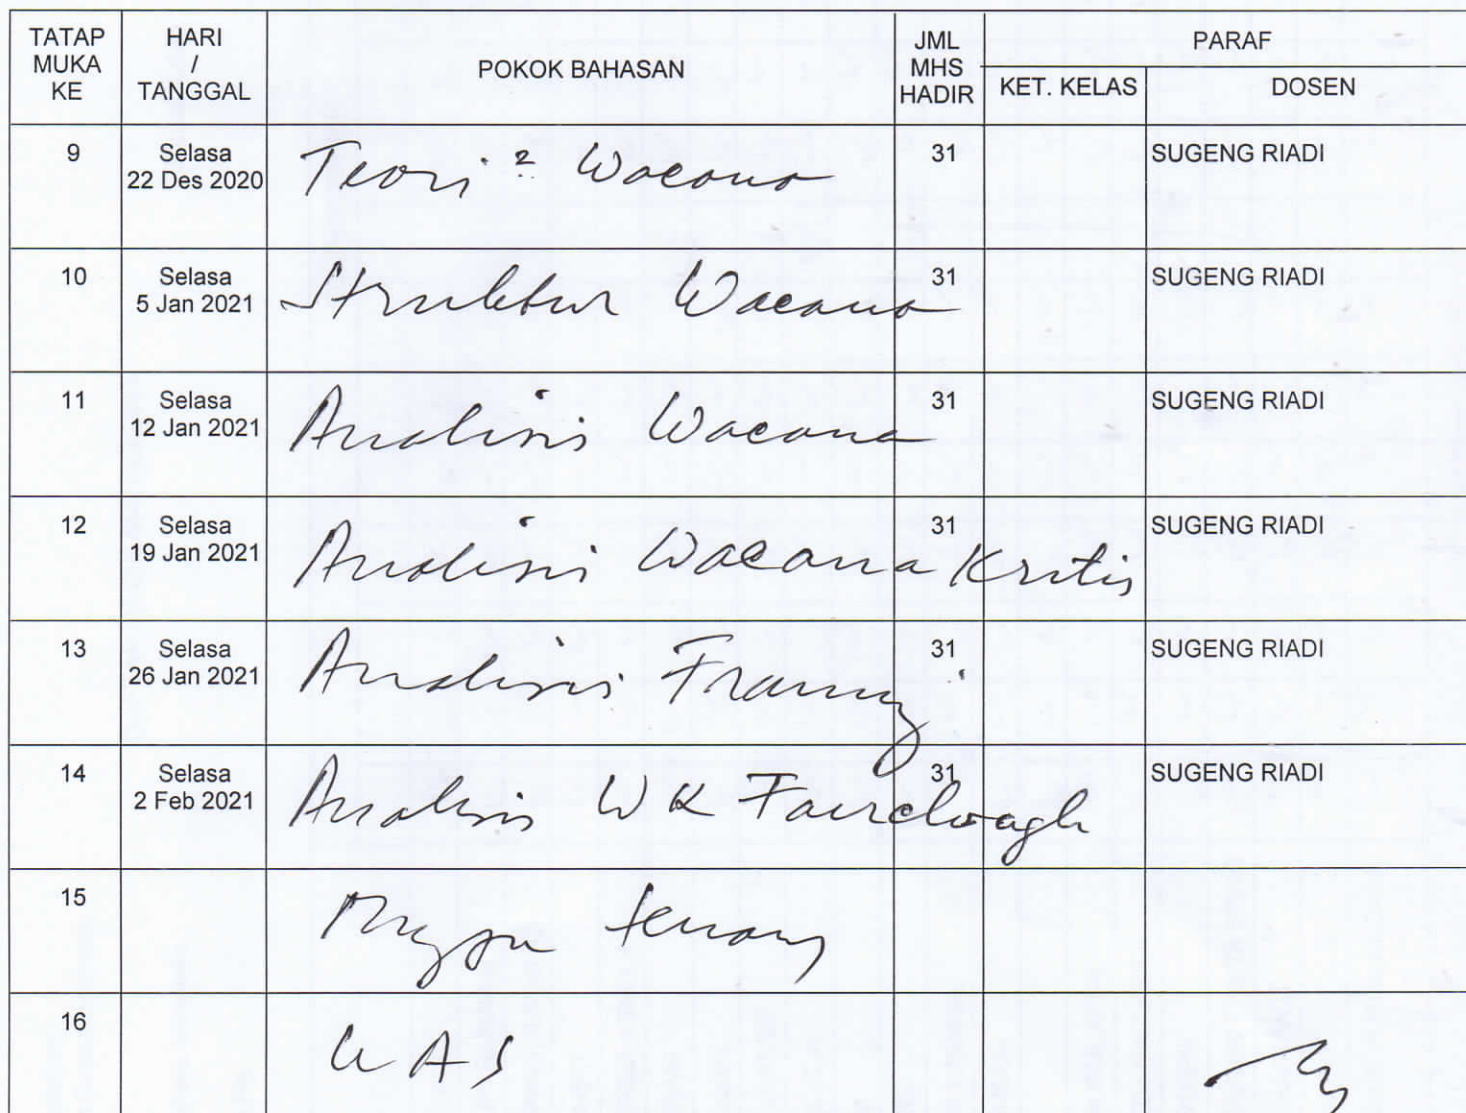 TATAP MUKA KE HARI / TANGGAL POKOK BAHASAN JML MHS HADIR PARAF
KET. KELAS DOSEN
9 Selasa 22 Des 2020 Teori² Wacana 31 SUGENG RIADI
10 Selasa 5 Jan 2021 Struktur Wacana 31 SUGENG RIADI
11 Selasa 12 Jan 2021 Analisis Wacana 31 SUGENG RIADI
12 Selasa 19 Jan 2021 Analisis Wacana Kritis 31 SUGENG RIADI
13 Selasa 26 Jan 2021 Analisis Framing 31 SUGENG RIADI
14 Selasa 2 Feb 2021 Analisis WK Fairclough 31 SUGENG RIADI
15 Minggu tenang
16 UAS